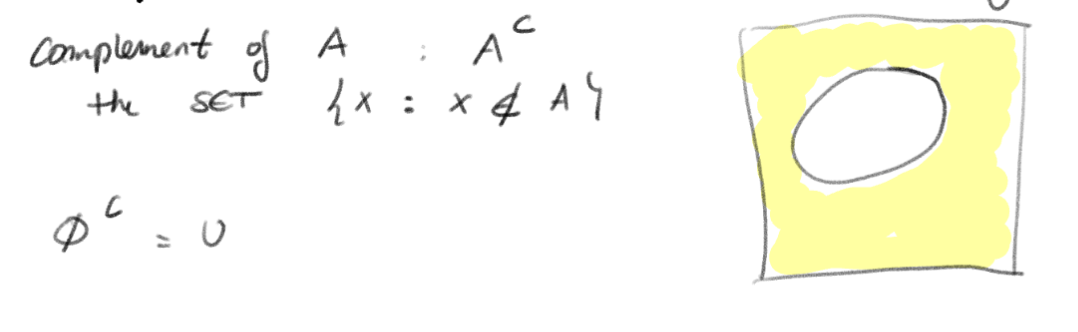 Complement of A : A^C
the SET {x : x ∉ A}
ϕ^C = U